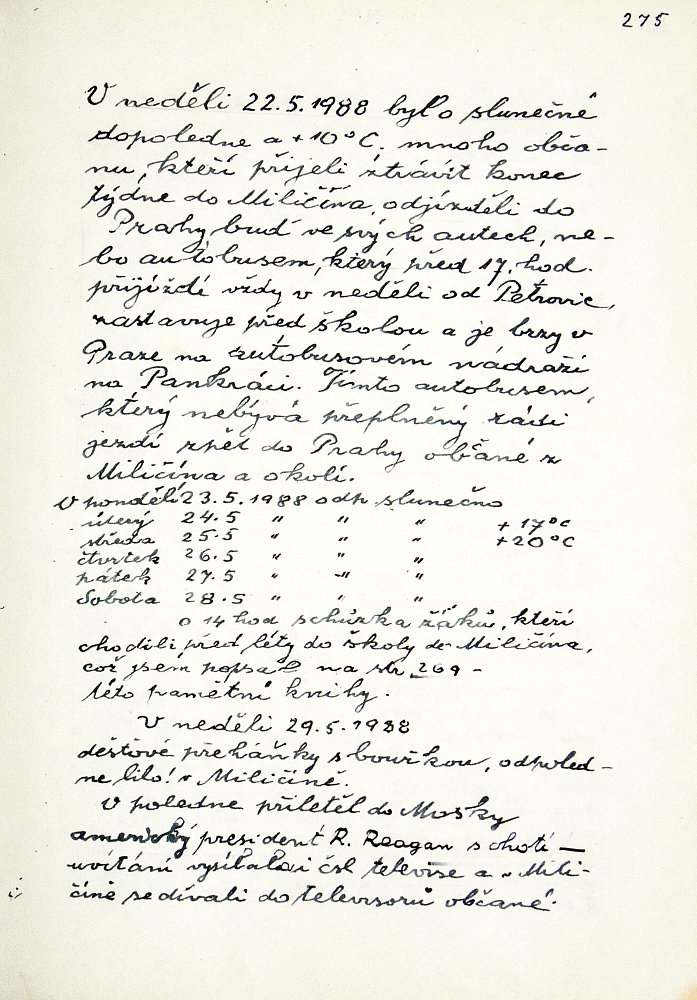 275
V neděli 22.5.1988 bylo slunečné
dopoledne a +10°C. mnoho obča-
nu, kteří přijeli ztrávit konec
týdne do Miličína, odjížděli do
Prahy buď ve svých autech, ne-
bo autobusem, který před 17. hod.
přijíždí vždy v neděli od Petrovic,
zastavuje před školou a je brzy v
Praze na autobusovém nádraží
na Pankráci. Tímto autobusem,
který nebývá přeplněný rádi
jezdí zpět do Prahy občané z
Miličína a okolí.
V pondělí 23.5.1988 odp. slunečno
úterý 24.5 " " " +17°C
středa 25.5 " " " +20°C
čtvrtek 26.5 " " "
pátek 27.5 " -"- "
Sobota 28.5 " " "
o 14 hod schůzka žáků, kteří
chodili před léty do školy do Miličína,
což jsem popsal na str. 269 -
této pamětní knihy.
V neděli 29.5.1988
dešťové přeháňky s bouřkou, odpoled-
ne lilo! v Miličíně.
V poledne přiletěl do Moskvy
americký president R. Reagan s chotí —
uvítání vysílala i čsl televise a v Mili-
číně se dívali do televisorů občané.